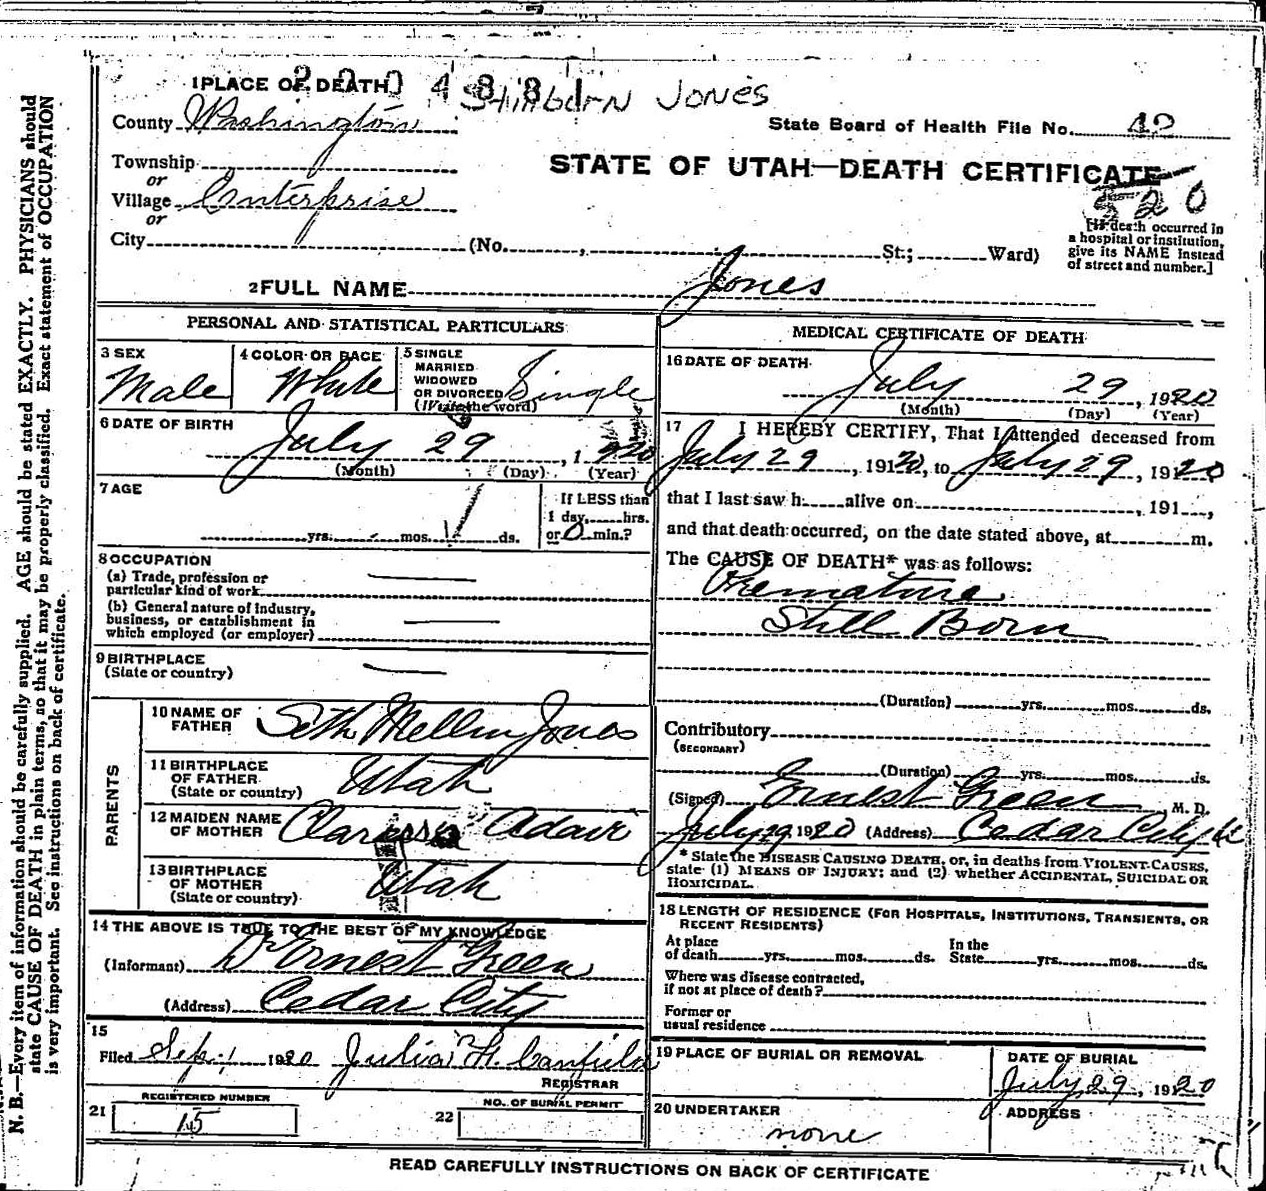 1 PLACE OF DEATH
2004881
Stillborn JONES
County Washington
State Board of Health File No. 42
Township
or
STATE OF UTAH—DEATH CERTIFICATE
520
Village Enterprise
or
City (No. , St.; Ward)
[If death occurred in
a hospital or institution,
give its NAME instead
of street and number.]
2 FULL NAME Jones
PERSONAL AND STATISTICAL PARTICULARS
3 SEX
Male
4 COLOR OR RACE
White
5 SINGLE
MARRIED
WIDOWED
OR DIVORCED
(Write the word)
Single
6 DATE OF BIRTH
July 29, 1920
(Month) (Day) (Year)
7 AGE
yrs. mos. ds.
If LESS than
1 day, hrs.
or 0 min.?
8 OCCUPATION
(a) Trade, profession or
particular kind of work
(b) General nature of industry,
business, or establishment in
which employed (or employer)
9 BIRTHPLACE
(State or country)
PARENTS
10 NAME OF
FATHER
Seth Mellin Jones
11 BIRTHPLACE
OF FATHER
(State or country)
Utah
12 MAIDEN NAME
OF MOTHER
Clarissa Adair
13 BIRTHPLACE
OF MOTHER
(State or country)
Utah
14 THE ABOVE IS TRUE TO THE BEST OF MY KNOWLEDGE
(Informant) Dr Ernest Green
(Address) Cedar City
15
Filed Sep. 1 1920 Julia H. Canfield
REGISTRAR
REGISTERED NUMBER
21 15
NO. OF BURIAL PERMIT
22
MEDICAL CERTIFICATE OF DEATH
16 DATE OF DEATH
July 29, 1920
(Month) (Day) (Year)
17 I HEREBY CERTIFY, That I attended deceased from
July 29, 1920, to July 29, 1920
that I last saw h alive on , 191 ,
and that death occurred, on the date stated above, at m.
The CAUSE OF DEATH* was as follows:
Premature
Still Born
(Duration) yrs. mos. ds.
Contributory
(SECONDARY)
(Duration) yrs. mos. ds.
(Signed) Ernest Green M. D.
July 29 1920 (Address) Cedar City
* State the DISEASE CAUSING DEATH, or, in deaths from VIOLENT CAUSES,
state (1) MEANS OF INJURY; and (2) whether ACCIDENTAL, SUICIDAL OR
HOMICIDAL.
18 LENGTH OF RESIDENCE (FOR HOSPITALS, INSTITUTIONS, TRANSIENTS, OR
RECENT RESIDENTS)
At place
of death yrs. mos. ds.
In the
State yrs. mos. ds.
Where was disease contracted,
if not at place of death?
Former or
usual residence
19 PLACE OF BURIAL OR REMOVAL
DATE OF BURIAL
July 29, 1920
20 UNDERTAKER
none
ADDRESS
READ CAREFULLY INSTRUCTIONS ON BACK OF CERTIFICATE
N. B.—Every item of information should be carefully supplied. AGE should be stated EXACTLY. PHYSICIANS should
state CAUSE OF DEATH in plain terms, so that it may be properly classified. Exact statement of OCCUPATION
is very important. See instructions on back of certificate.